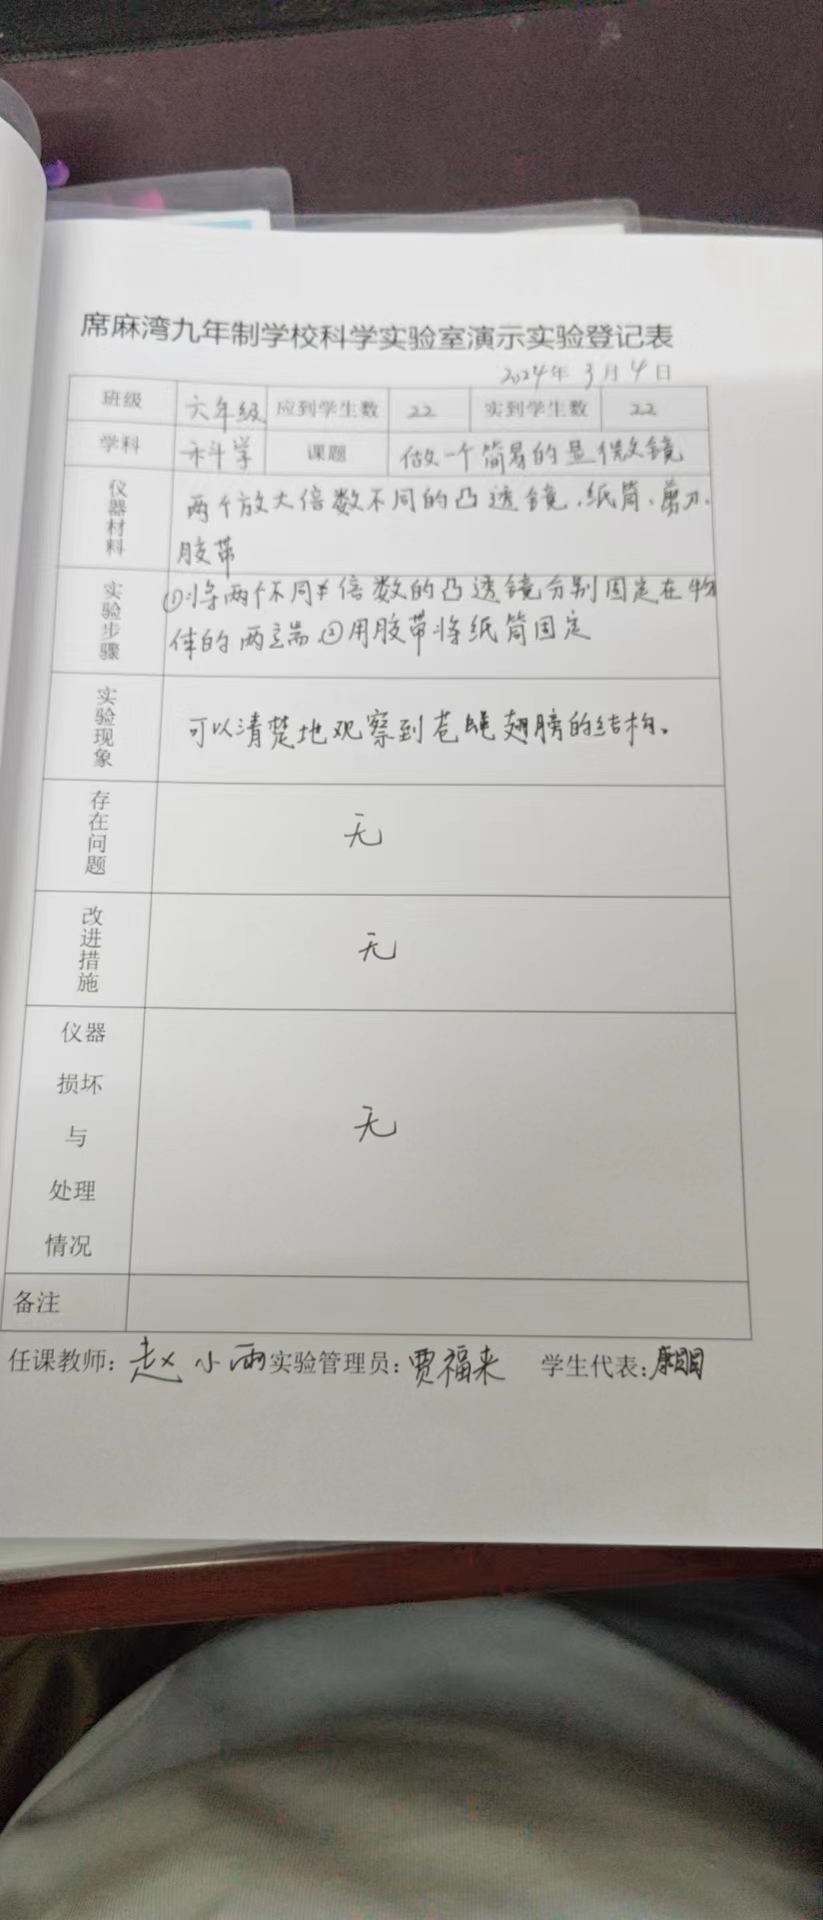 席麻湾九年制学校科学实验室演示实验登记表
2024年 3月 4日
班级 六年级 应到学生数 22 实到学生数 22
学科 科学 课题 做一个简易的显微镜
仪器材料 两个放大倍数不同的凸透镜、纸筒、剪刀、
胶带
实验步骤 ①将两个不同 倍数的凸透镜分别固定在物
体的两端 ②用胶带将纸筒固定
实验现象 可以清楚地观察到苍蝇翅膀的结构。
存在问题 无
改进措施 无
仪器
损坏
与 无
处理
情况
备注
任课教师：赵小雨 实验管理员：贾福来 学生代表：康